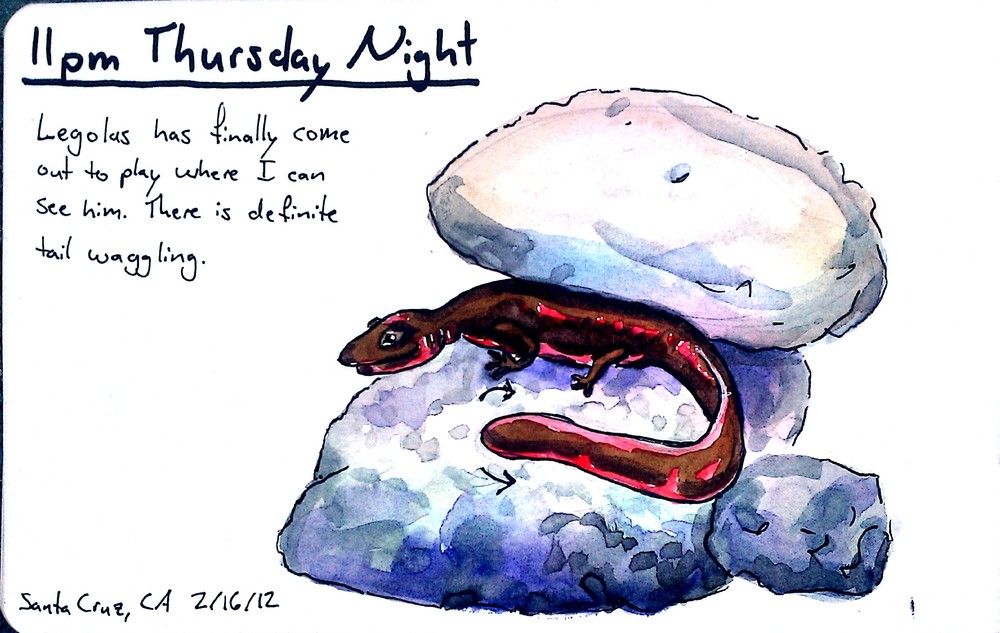 11pm Thursday Night
Legolas has finally come
out to play where I can
see him. There is definite
tail waggling.
Santa Cruz, CA 2/16/12